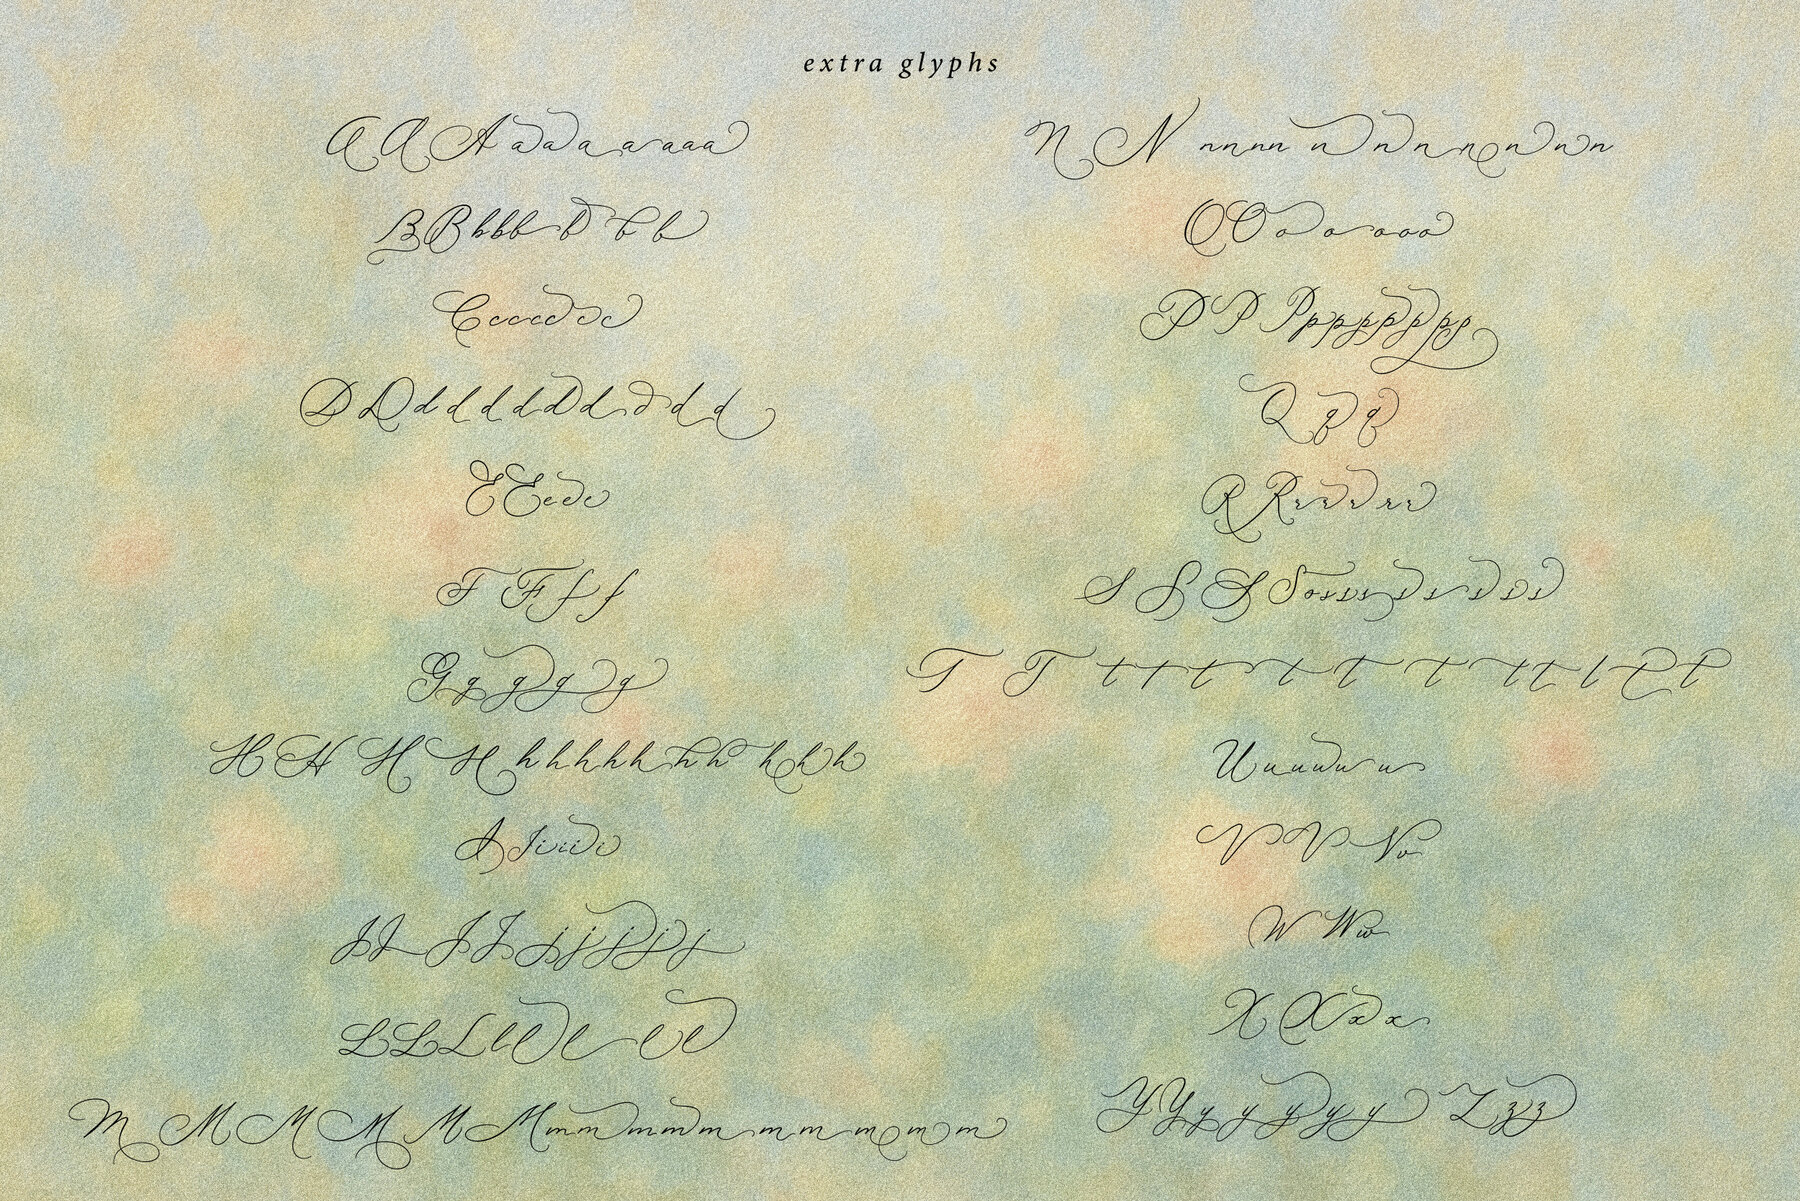 extra glyphs
A A A a a a a a a a
B B b b b b b b
C c c c c d c c
D D d d d d d d d d d
E E e e e
F F f f
G g g g g
H H H H h h h h h h h h h h
I I i i i i i
J J J J j j j j j j
L L L l l l l l
M M M M M M m m m m m m m m m m
N N n n n n n n n n n n n
O O o o o o o
P P P p p p p p p p p
Q q q
R R r r r r r
S S S S o s s s s s s s s
T T t t t t t t t t t t t
U u u u u u
V V V v
W W w
X X x x
Y Y y y y y y Z z z